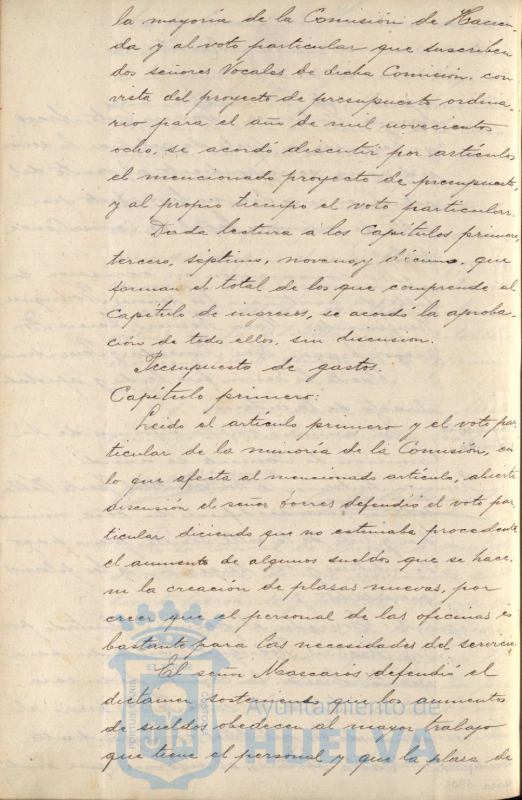 la mayoría de la Comisión de Hacien-
da y al voto particular que suscriben
dos señores Vocales de dicha Comisión, con
vista del proyecto de presupuesto ordina-
rio para el año de mil novecientos
ocho, se acordó discutir por artículos
el mencionado proyecto de presupuesto
y al propio tiempo el voto particular.
Dada lectura á los Capítulos primero,
tercero, séptimo, noveno y décimo, que
forman el total de los que comprende el
Capítulo de ingresos, se acordó la aproba-
ción de todo ellos, sin discusion.
Presupuesto de gastos.
Capítulo primero:
Leido el artículo primero y el voto par-
ticular de la minoría de la Comisión, en
lo que afecta al mencionado artículo, abierta
discusión el señor Torres defendió el voto par-
ticular diciendo que no estimaba procedente
el aumento de algunos sueldos que se hace,
ni la creación de plasas nuevas, por
creer que el personal de las oficinas es
bastante para las necesidades del servicio.
El señor Mascarós defendió el
dictámen sosteniendo que los aumentos
de sueldos obedecen al mayor trabajo
que tiene el personal y que la plasa de
Ayuntamiento de
HUELVA